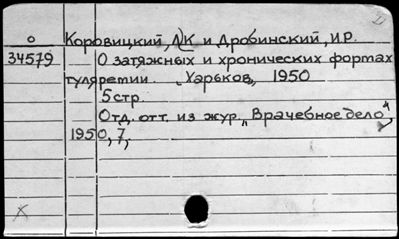 о Коровицкий, Л.К и Дробинский, И.Р.
34579 О затяжных и хронических фортах
туляремии. Харьков, 1950
5 стр.
Отд. отт. из жур. „Врачебное дело",
1950, 7,